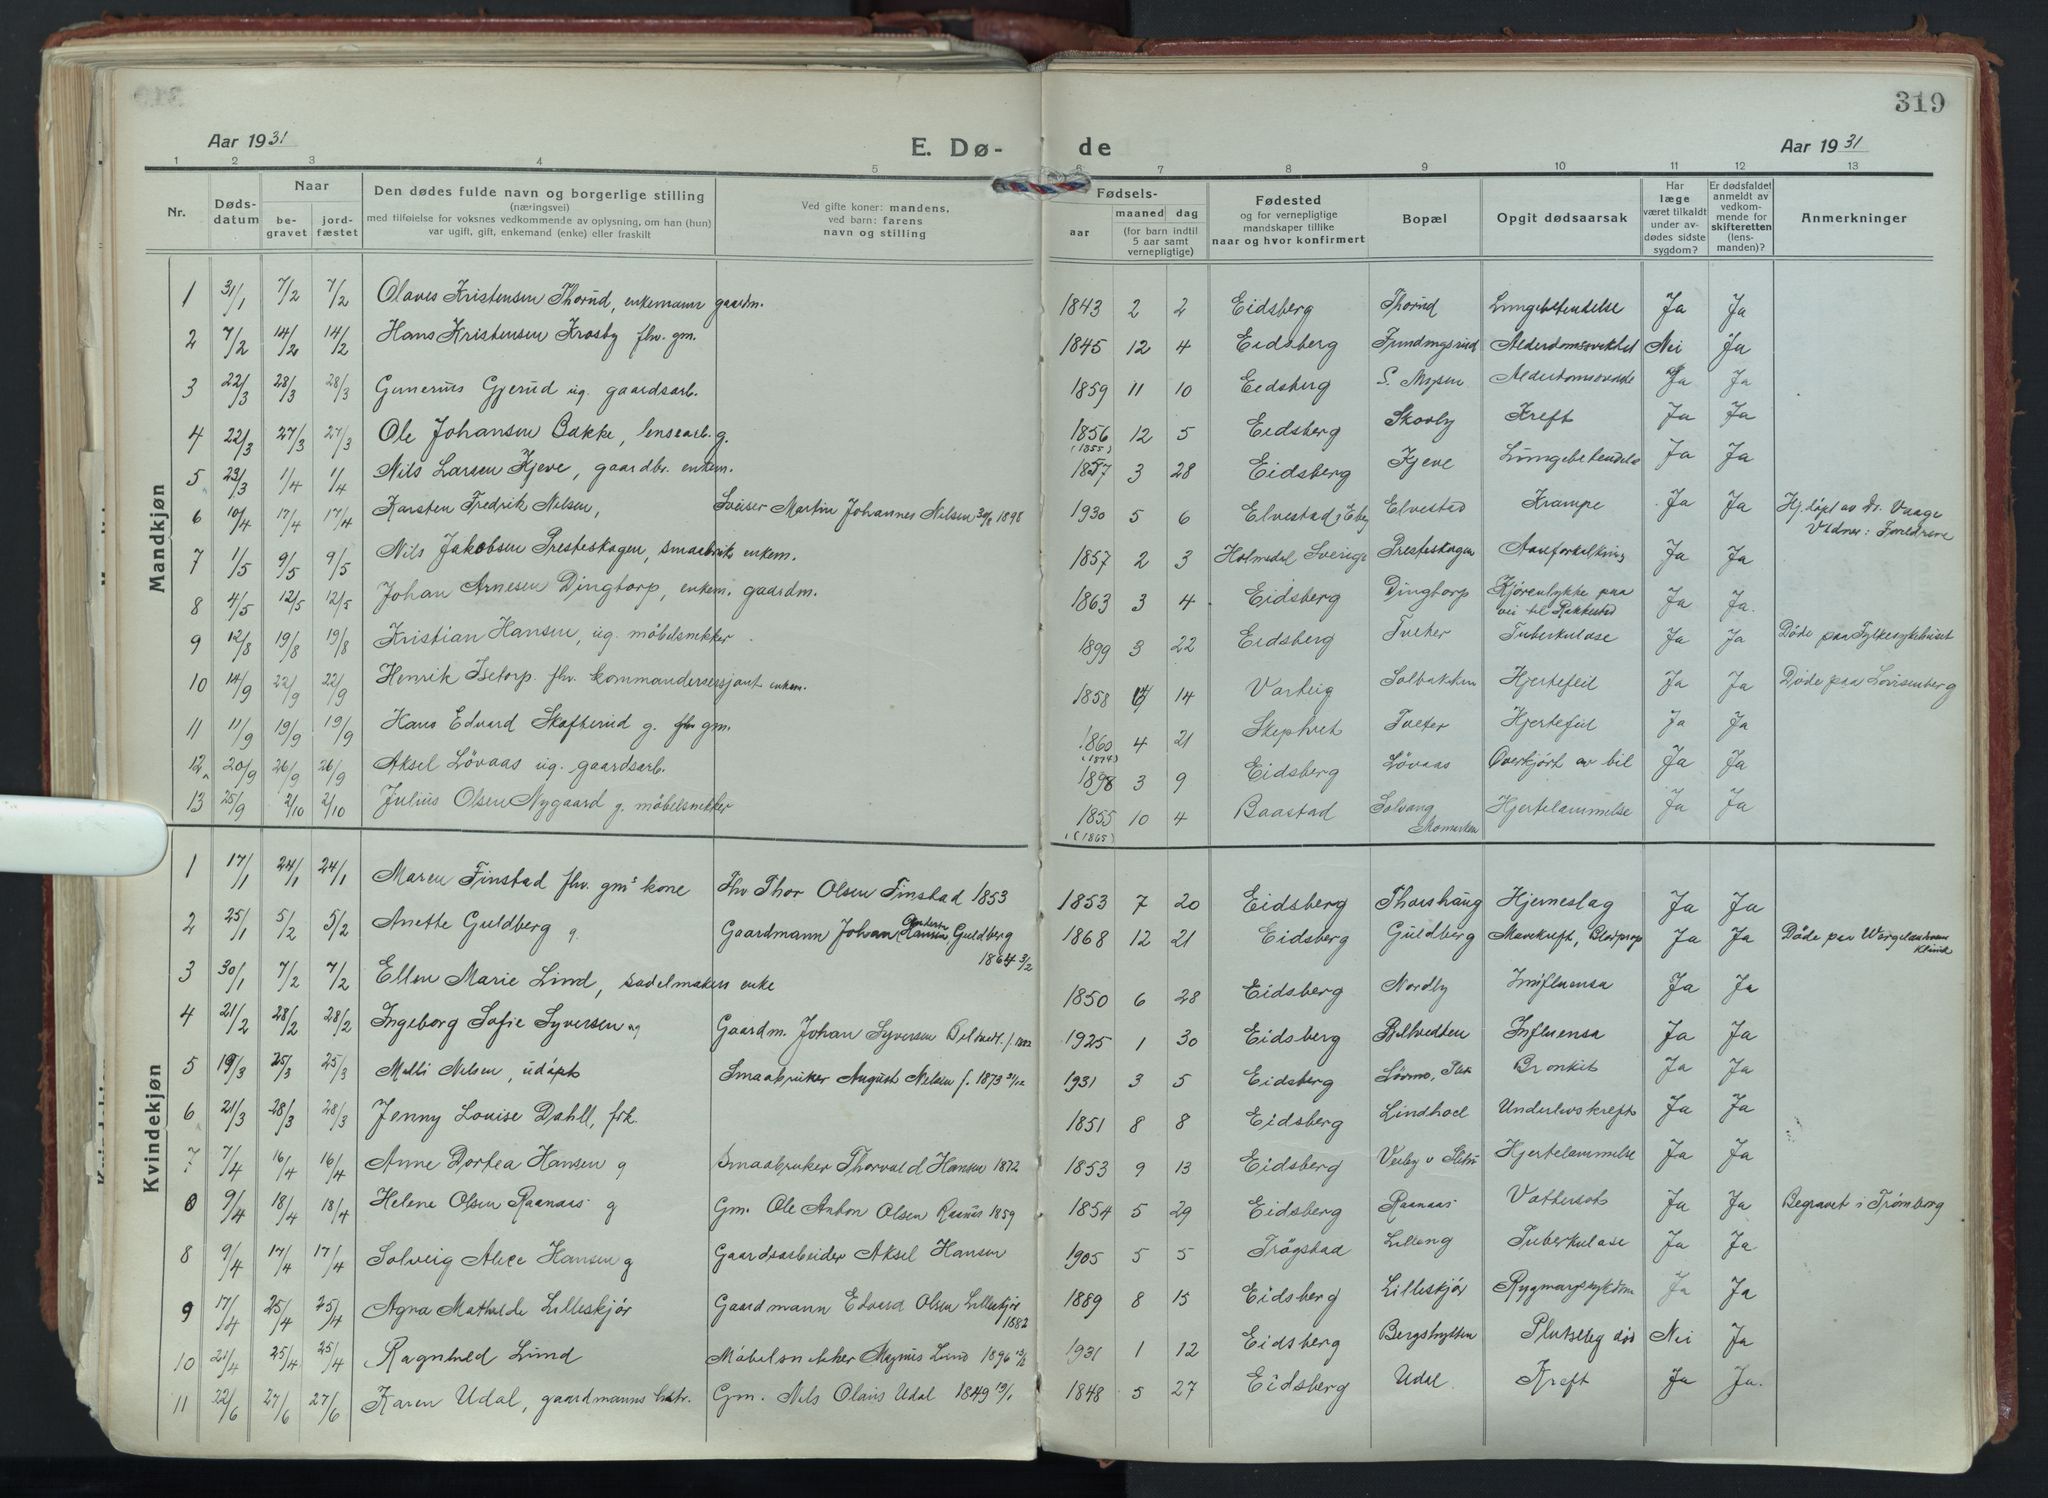 319
Aar 1931
E. Dø-
de
Aar 1931
1 2 3 4 5 6 7 8 9 10 11 12 13
Nr.
Døds-
datum
Naar
be-
gravet
jord-
fæstet
Den dødes fulde navn og borgerlige stilling
(næringsvei)
med tilføielse for voksnes vedkommende av oplysning, om han (hun)
var ugift, gift, enkemand (enke) eller fraskilt
Ved gifte koner: mandens,
ved barn: farens
navn og stilling
Fødsels-
aar
maaned
dag
(for barn indtil
5 aar samt
vernepligtige)
Fødested
og for vernepligtige
mandskaper tillike
naar og hvor konfirmert
Bopæl
Opgit dødsaarsak
Har
læge
været tilkaldt
under av-
dødes sidste
sygdom?
Er dødsfaldet
anmeldt av
vedkom-
mende for
skifteretten
(lens-
manden)?
Anmerkninger
Mandkjøn
1 31/1 7/2 7/2 Olaves Kristensen Thorud, enkemann gaardm. 1843 2 2 Eidsberg Thorud Lungebetendelse Ja Ja
2 7/2 14/2 14/2 Hans Kristensen Krosby fhv. gm. 1845 12 4 Eidsberg Fundingsrud Alderdomssvakhet Nei Ja
3 22/3 28/3 28/3 Gunerius Gjerud ug. gaardsarb. 1859 11 10 Eidsberg S. Mysen Ja Ja
4 22/3 27/3 27/3 Ole Johansen Bakke, lensearb. g. 1856 12 5 Eidsberg Skovby Kreft Ja Ja
(1855)
5 23/3 1/4 1/4 Nils Larsen Kjeve, gaardbr. enkem. 1857 3 28 Eidsberg Kjeve Lungebetendelse Ja Ja
6 10/4 17/4 17/4 Karsten Fredrik Nilsen, Sveiser Martin Johannes Nilsen 1898 1930 5 6 Elvestad i Elvestad Krampe Ja Ja Hj. døpt av Dr. Vaage
Vidner: Foreldrene
7 1/5 9/5 9/5 Nils Jakobsen Presteskogen, smaabruk. enkem. 1857 2 3 Holmedal Sverige Presteskogen Aareforkalkning Ja Ja
8 4/5 12/5 12/5 Johan Arnesen Dingtorp, enkem. gaardm. 1863 3 4 Eidsberg Dingtorp Kjøreulykke paa
vei til Rakkestad Ja Ja.
9 12/8 19/8 19/8 Kristian Hansen, ug. möbelsnekker 1899 3 22 Eidsberg Tveter Tuberkulose Ja Ja Døde paa Fylkesykehuset
10 14/9 22/9 22/9 Henrik Isetorp fhv. kommandersersjant enkem. 1858 14 Varteig Solbakken Hjertefeil Ja Ja Døde paa Lovisenberg
11 11/9 19/9 19/9 Hans Edvard Skofterud g. fhv gm. 1860 4 21 Skiptvet Tveter Hjertefeil Ja Ja
(1874)
12 20/9 26/9 26/9 Aksel Lövaas ug. gaardsarb. 1898 3 9 Eidsberg Lövaas Overkjört av bil Ja Ja
13 25/9 2/10 2/10 Julius Olsen Nygaard g. möbelsnekker 1855 10 4 Baastad Solvang
Momarken Hjertelammelse Ja Ja
(1865)
Kvindekjøn
1 17/1 24/1 24/1 Maren Finstad fhv. gms kone Fhv Thor Olsen Finstad 1853 1853 7 20 Eidsberg Thorshaug Hjerneslag Ja Ja
2 25/1 5/2 5/2 Anette Guldberg g. Gaardmann Johan Hansen Guldberg
1864 3/2 1868 12 21 Eidsberg Guldberg Mavekreft, Blodprop Ja Ja Døde paa
3 30/1 7/2 7/2 Ellen Marie Lund, sadelmakers enke 1850 6 28 Eidsberg Nordby Influensa Ja Ja
4 21/2 28/2 28/2 Ingeborg Sofie Syversen ug Gaardm. Johan Syversen 1925 1 30 Eidsberg Influensa Ja Ja
5 19/3 25/3 25/3 Milli Nilsen, udöpt Smaabruker August Nilsen f. 1873 1931 3 5 Eidsberg Bronkit Ja Ja
6 21/3 28/3 28/3 Jenny Louise Dahll, frk. 1851 8 8 Eidsberg Lindhoel Underlivskreft Ja Ja
7 7/4 16/4 16/4 Anne Dortea Hansen g Smaabruker Thorvald Hansen 1872 1853 9 13 Eidsberg Hjertelammelse Ja Ja
0 9/4 18/4 18/4 Helene Olsen Raanaas g Gm. Ole Anton Olsen Raanaas 1859 1854 5 29 Eidsberg Raanaas Vattersot Ja Ja Begravet i Trømborg
8 9/4 17/4 17/4 Solveig Alice Hansen g Gaardsarbeider Aksel Hansen 1905 5 5 Trögstad Lilleng Tuberkulose Ja Ja
9 17/4 25/4 25/4 Agna Mathilde Lilleskjör Gaardmann Edvard Olsen Lilleskjör
1882 1889 8 15 Eidsberg Lilleskjör Rygmargssykdom Ja Ja
10 21/4 25/4 25/4 Ragnhild Lund Möbelsnekker Magnus Lund 1896 1931 1 12 Eidsberg Bergshytten Plutselig död Nei Ja
11 22/6 27/6 27/6 Karen Udal, gaardmanns hstr. Gm. Nils Olaus Udal 1849 1848 5 27 Eidsberg Udal Kreft Ja Ja.